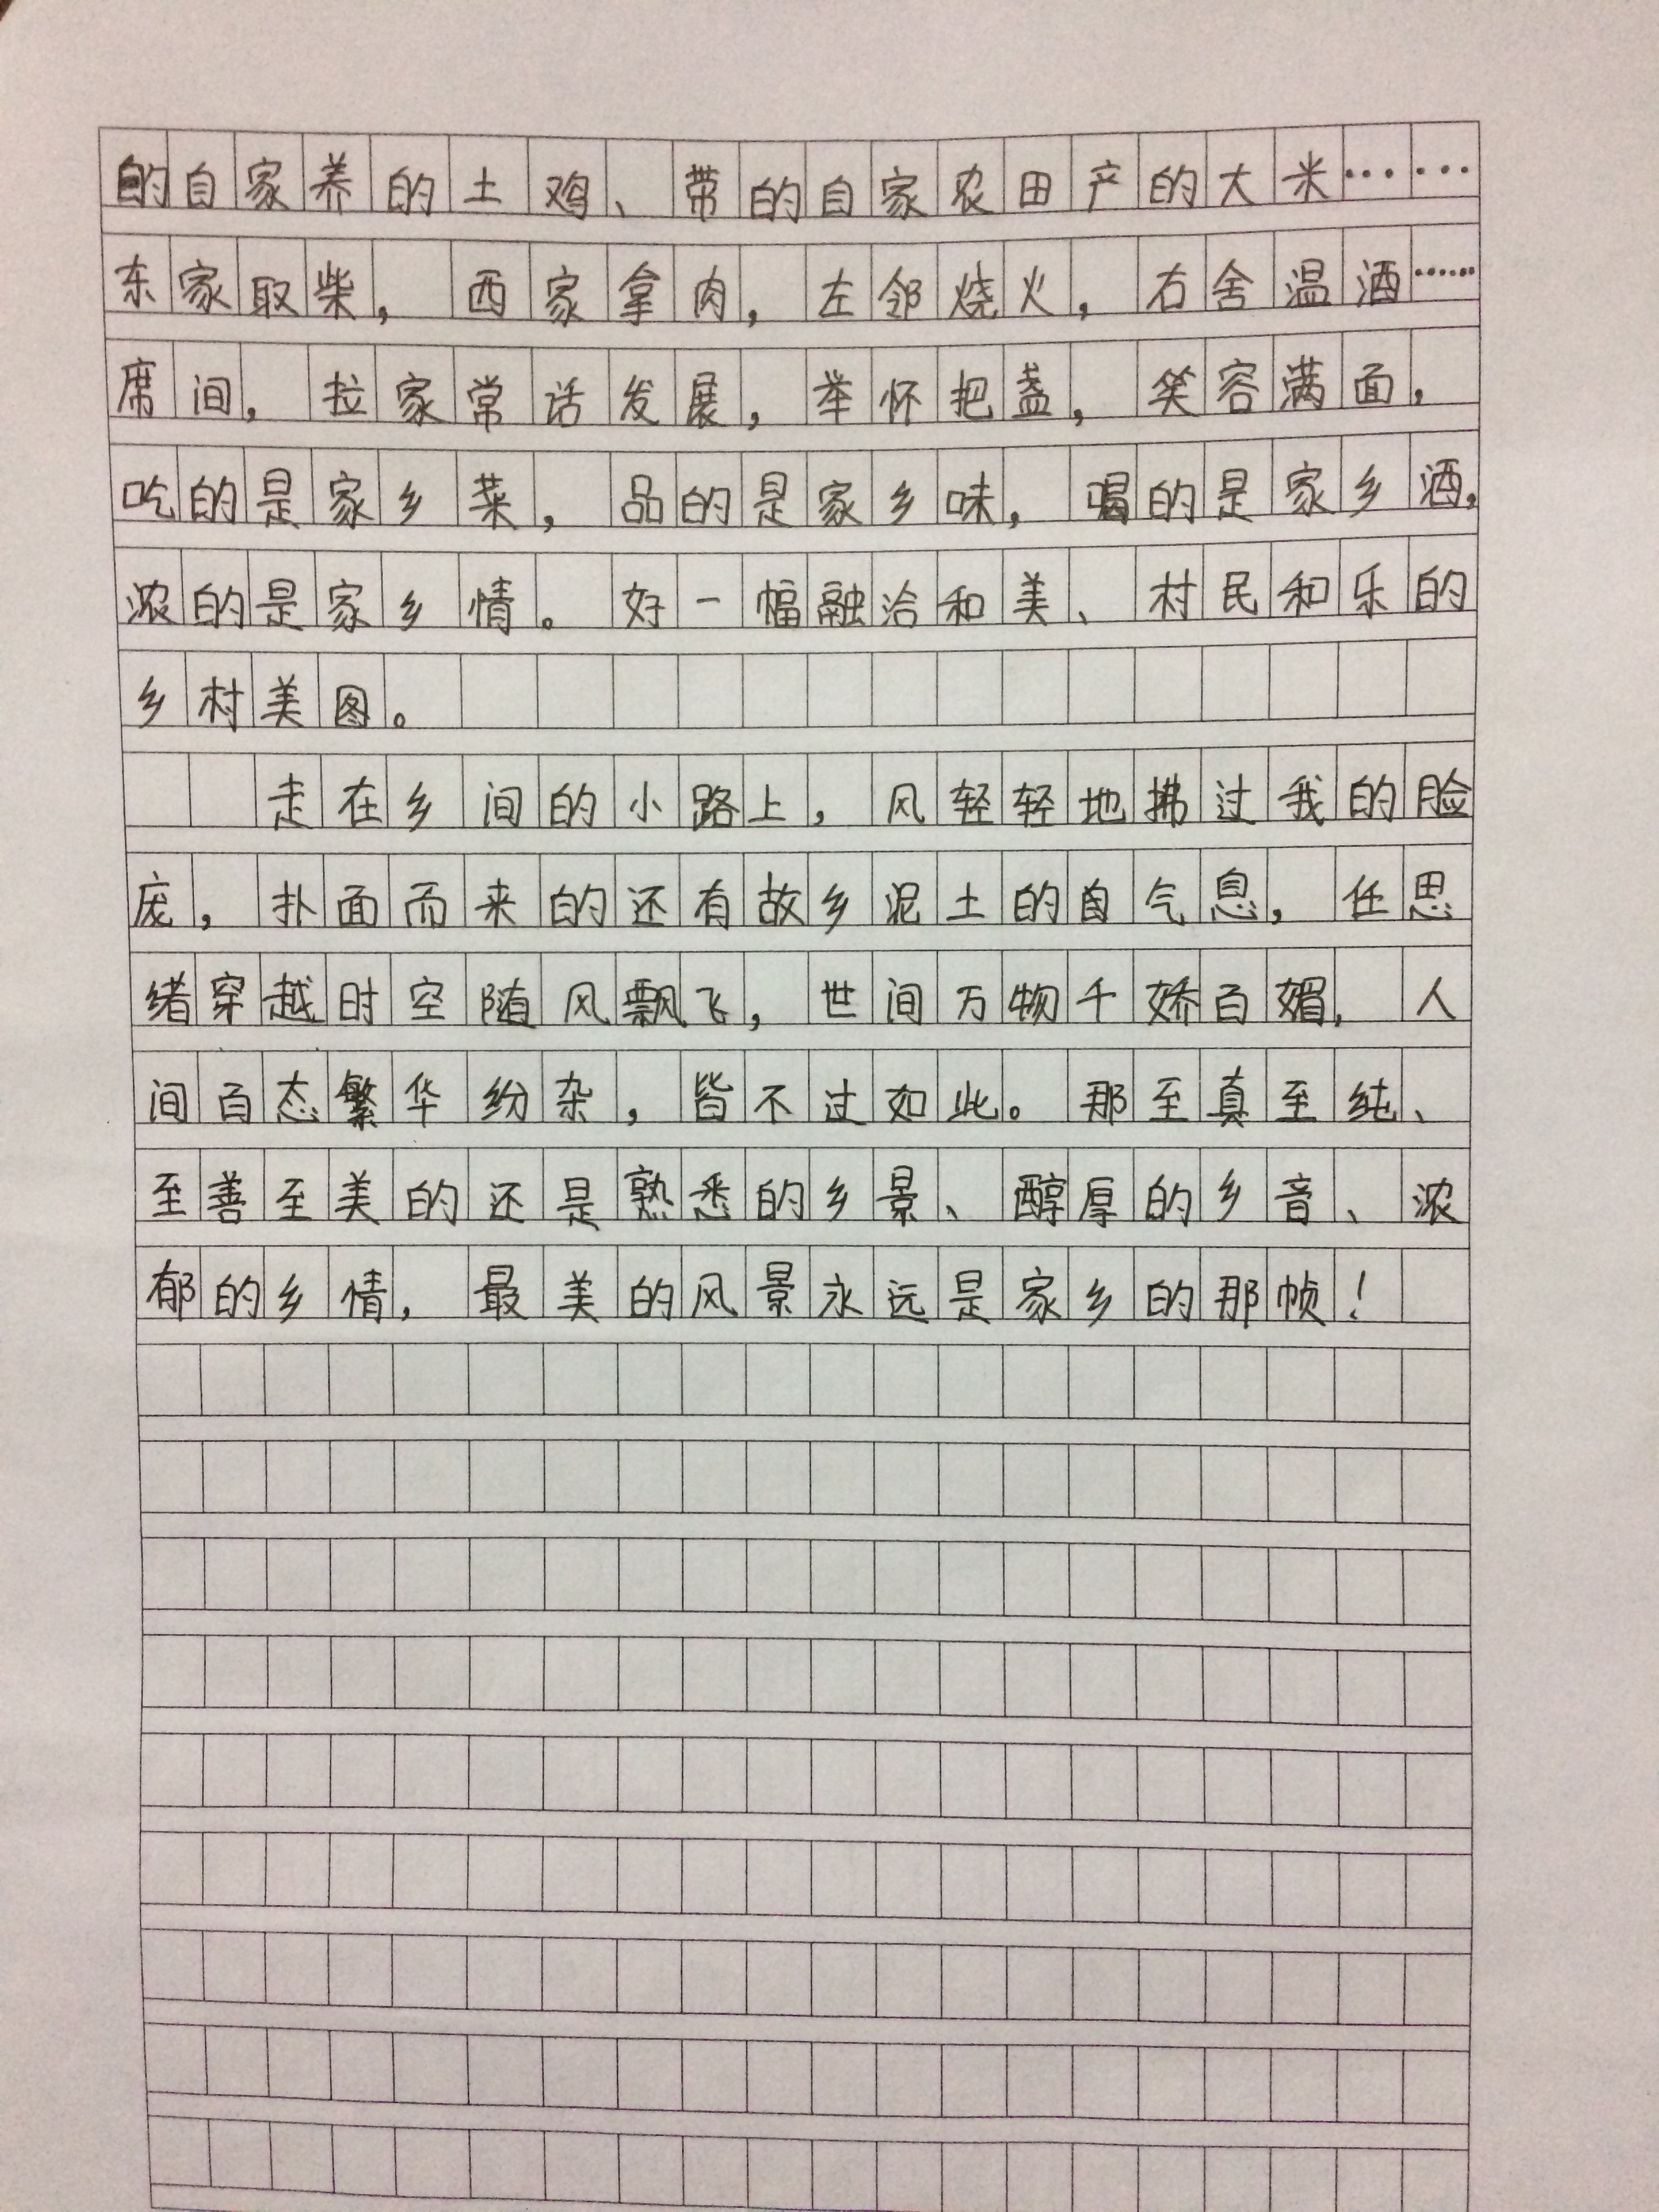 的自家养的土鸡、带的自家农田产的大米……
东家取柴，西家拿肉，左邻烧火，右舍温酒……
席间，拉家常话发展，举怀把盏，笑容满面，
吃的是家乡菜，品的是家乡味，喝的是家乡酒，
浓的是家乡情。好一幅融洽和美、村民和乐的
乡村美图。
走在乡间的小路上，风轻轻地拂过我的脸
庞，扑面而来的还有故乡泥土的自气息，任思
绪穿越时空随风飘飞，世间万物千娇百媚，人
间百态繁华纷杂，皆不过如此。那至真至纯、
至善至美的还是熟悉的乡景、醇厚的乡音、浓
郁的乡情，最美的风景永远是家乡的那帧！